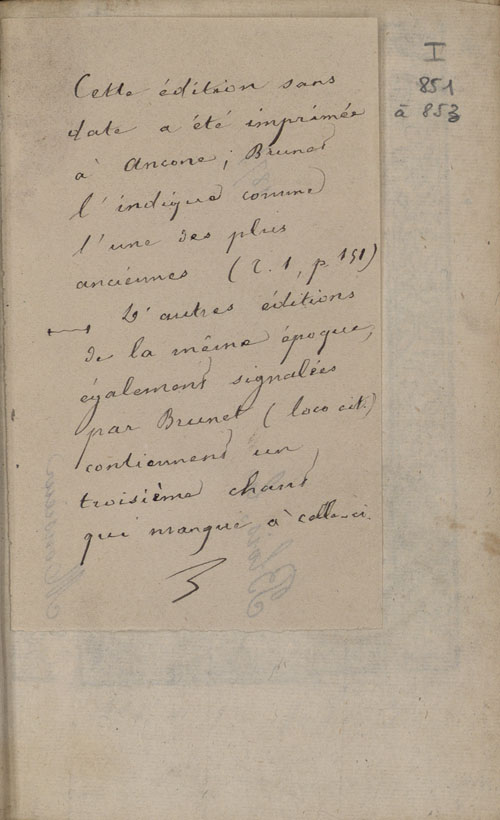 Cette édition sans
date a été imprimée
à Ancone ; Brunet
l'indique comme
l'une des plus
anciennes (T. 1, p. 151)
D'autres éditions
de la même époque,
également signalées
par Brunet (loco cit.)
contiennent un
troisième chant
qui manque à celle-ci.
I
851
à 853